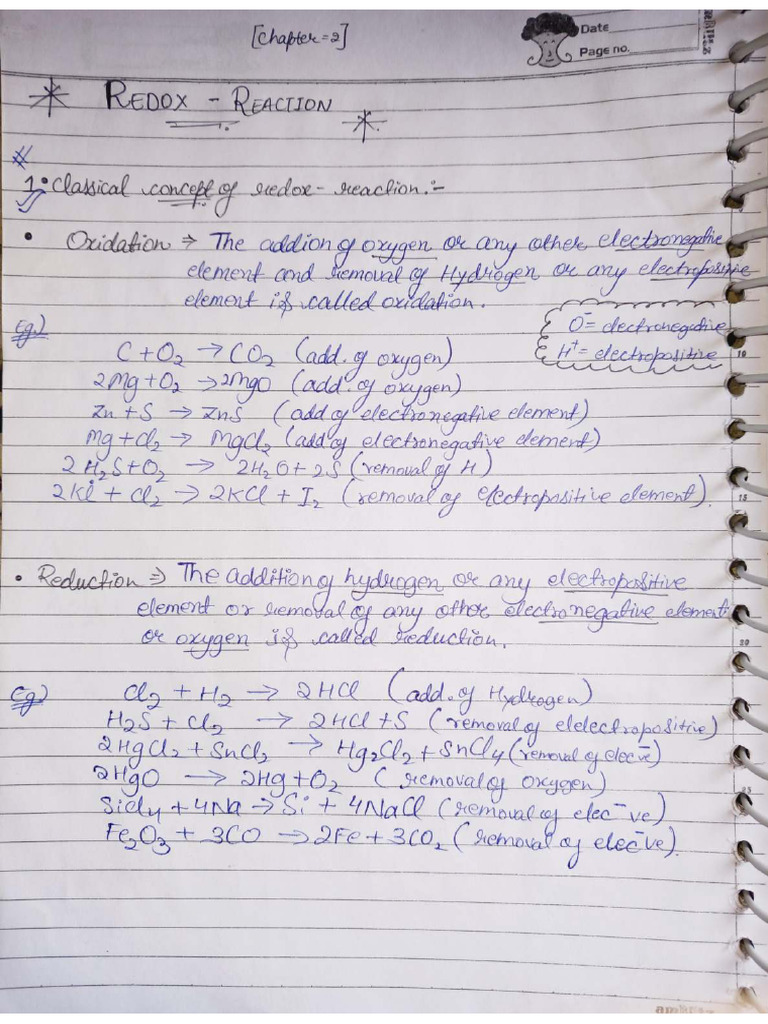 [Chapter = 2]
Date
Page no.
* REDOX - REACTION *
#
1. Classical concept of redox - reaction :-
• Oxidation ⇒ The addion of oxygen or any other electronegative
element and removal of Hydrogen or any electropositive
element is called oxidation.
O⁻ = electronegative
H⁺ = electropositive
Eg.)
C + O₂ → CO₂ (add. of oxygen)
2Mg + O₂ → 2MgO (add. of oxygen)
Zn + S → ZnS (add of electronegative element)
Mg + Cl₂ → MgCl₂ (add of electronegative element)
2 H₂S + O₂ → 2H₂O + 2S (removal of H)
2KI + Cl₂ → 2KCl + I₂ (removal of electropositive element).
• Reduction ⇒ The addition of hydrogen or any electropositive
element or removal of any other electronegative element
or oxygen is called reduction.
Eg) Cl₂ + H₂ → 2HCl (add. of Hydrogen)
H₂S + Cl₂ → 2HCl + S (removal of elelectropositive)
2HgCl₂ + SnCl₂ → Hg₂Cl₂ + SnCl₄ (removal of elec⁻ve)
2HgO → 2Hg + O₂ (removal of oxygen)
SiCl₄ + 4Na → Si + 4NaCl (removal of elec⁻ve)
Fe₂O₃ + 3CO → 2Fe + 3CO₂ (removal of elec⁻ve).
10
15
20
25